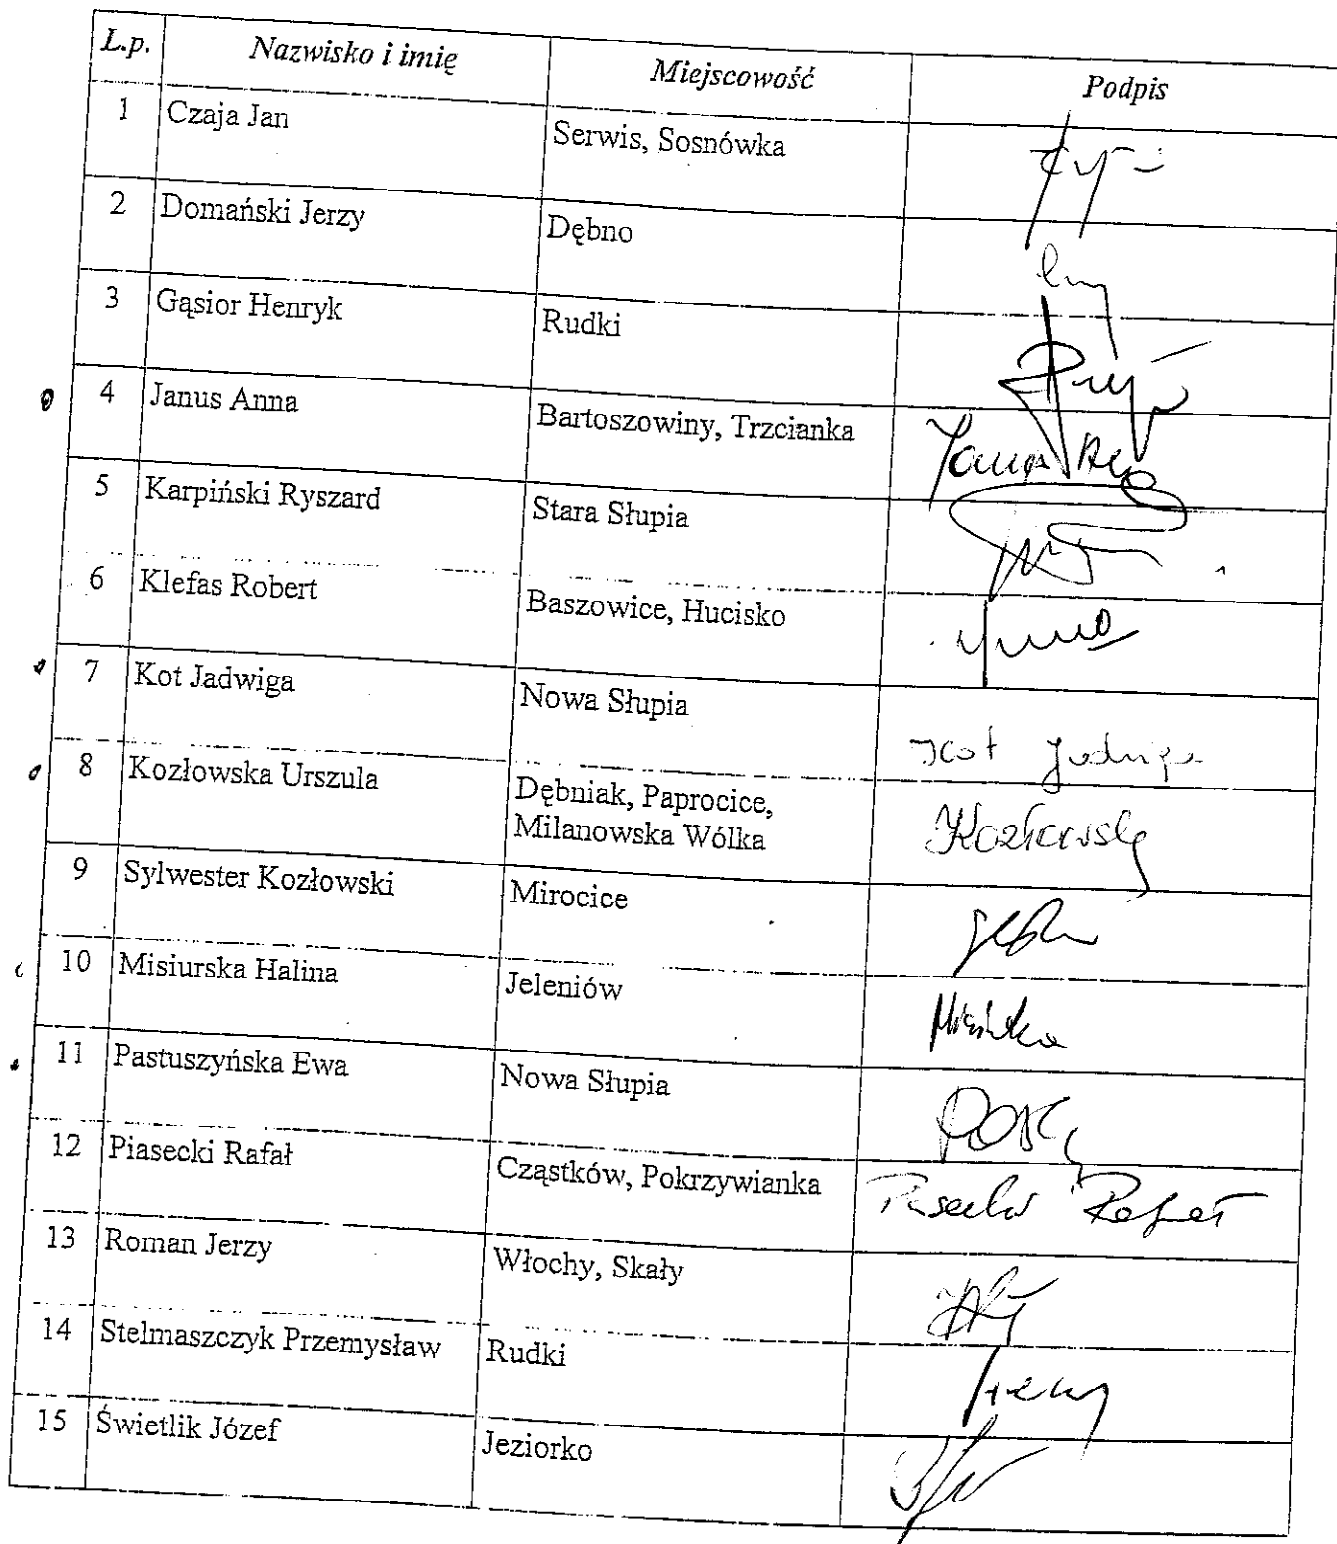 L.p. Nazwisko i imię Miejscowość Podpis
1 Czaja Jan Serwis, Sosnówka
2 Domański Jerzy Dębno
3 Gąsior Henryk Rudki
4 Janus Anna Bartoszowiny, Trzcianka
5 Karpiński Ryszard Stara Słupia
6 Klefas Robert Baszowice, Hucisko
7 Kot Jadwiga Nowa Słupia Kot Jadwiga
8 Kozłowska Urszula Dębniak, Paprocice,
Milanowska Wólka Kozłowska
9 Sylwester Kozłowski Mirocice
10 Misiurska Halina Jeleniów
11 Pastuszyńska Ewa Nowa Słupia
12 Piasecki Rafał Cząstków, Pokrzywianka Piasecki Rafał
13 Roman Jerzy Włochy, Skały
14 Stelmaszczyk Przemysław Rudki
15 Świetlik Józef Jeziorko